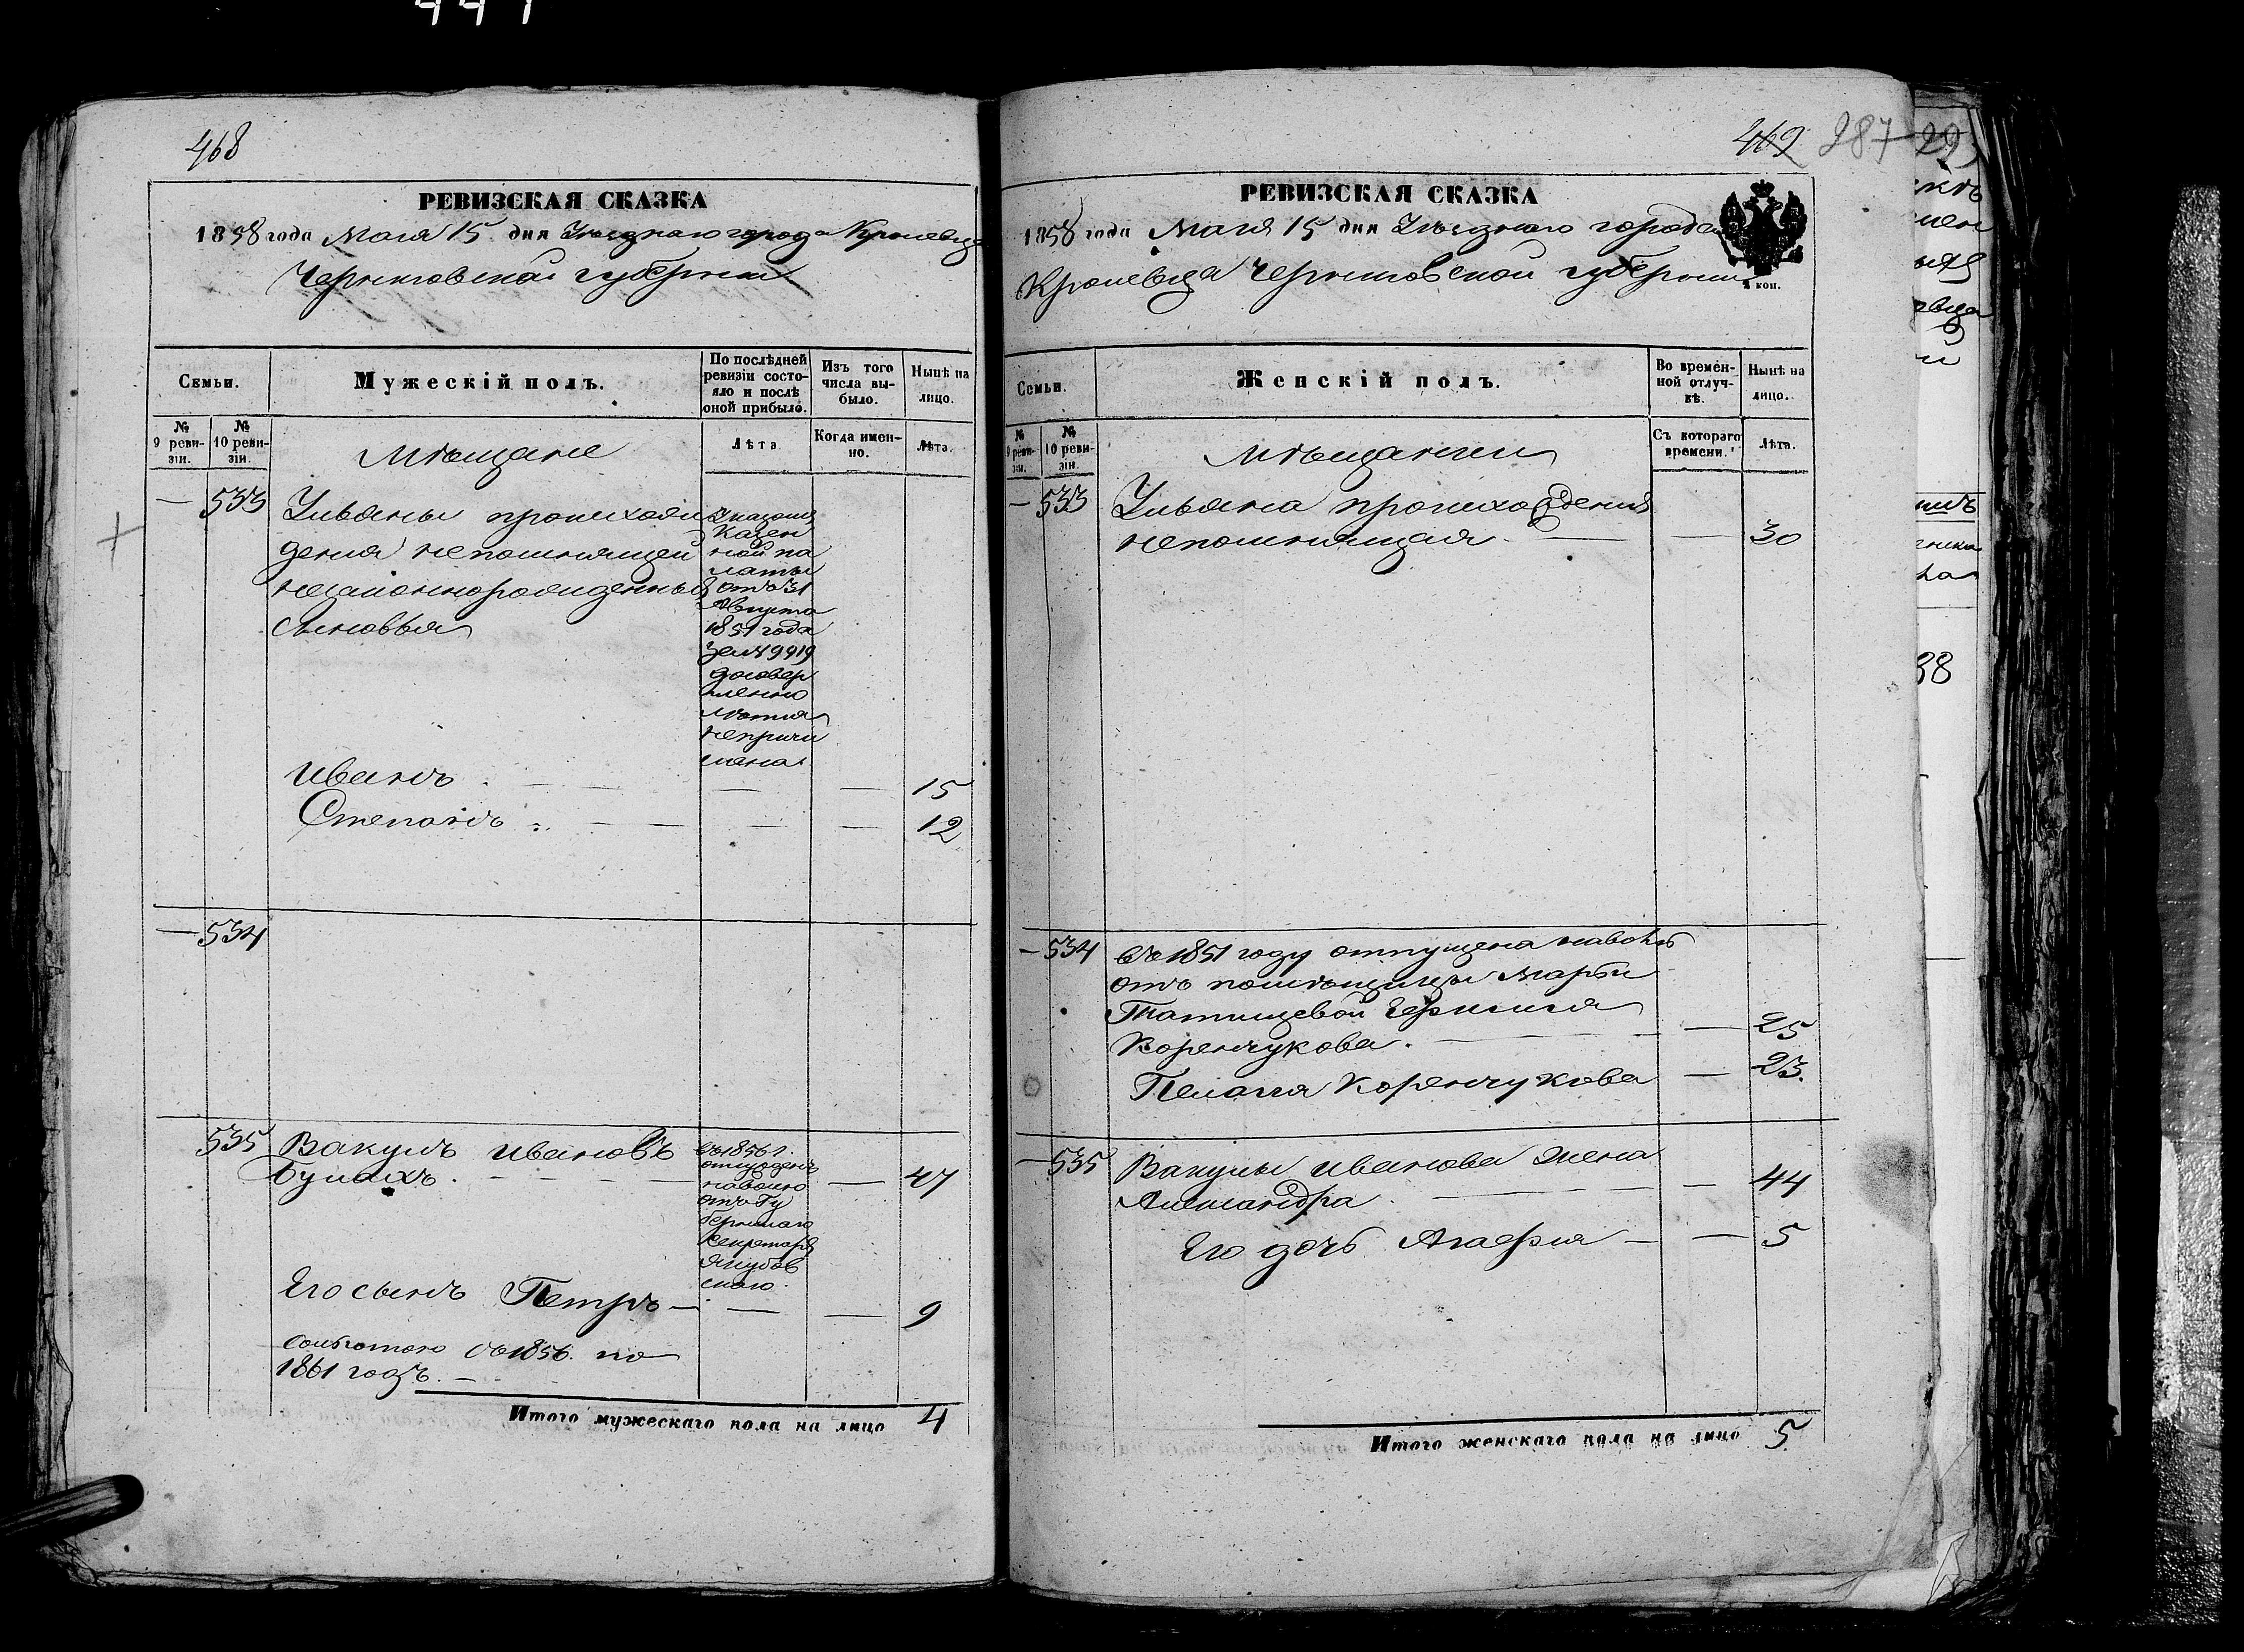 468
РЕВИЗСКАЯ СКАЗКА
1858 года Маія 15 дня Уѣзднаго города Кролевца
Черниговской губерніи
Семьи.
Мужескій полъ.
По послѣдней ревизіи состояло и послѣ оной прибыло.
Изъ того числа выбыло.
Нынѣ на лицо.
№ 9 ревизіи.
№ 10 ревизіи.
Мѣщане
Лѣта
Когда именно.
Лѣта.
— 533
Ульяны происхож
денія непомнящей
незаконнорожденные
сыновья
Указомъ
Казен
ной па
латы
отъ 31
Августа
1851 года
за №
до совер
шенно
лѣтія
непричи
слена
Иванъ — — — 15
Степанъ — — — 12
— 534
535 Вакулъ Ивановъ
— 47
въ 1856 г.
отпущенъ
на волю
отъ Гу
бернскаго
секретаря
Якубов
скаго
Его сынъ Петръ — — — 9
Со льготою съ 1856 по
1861 годъ. —
Итого мужескаго пола на лицо 4
469 287 29
РЕВИЗСКАЯ СКАЗКА
1858 года Маія 15 дня Уѣзднаго города
Кролевца Черниговской губерніи
коп.
Семьи.
Женскій полъ.
Во временной отлучкѣ.
Нынѣ на лицо.
№ 9 ревизіи.
№ 10 ревизіи.
Мѣщанки
Съ котораго времени.
Лѣта.
— 533 Ульяна происхожденія
непомнящая — — 30
— 534 въ 1851 году отпущена на волю
отъ помѣщицы Марьи
Татищевой
Коренчукова. — — 25
Пелагія Коренчукова — 23.
— 535 Вакулы Иванова жена
Александра — — 44
Его дочь Агафія — — 5
Итого женскаго пола на лицо 5